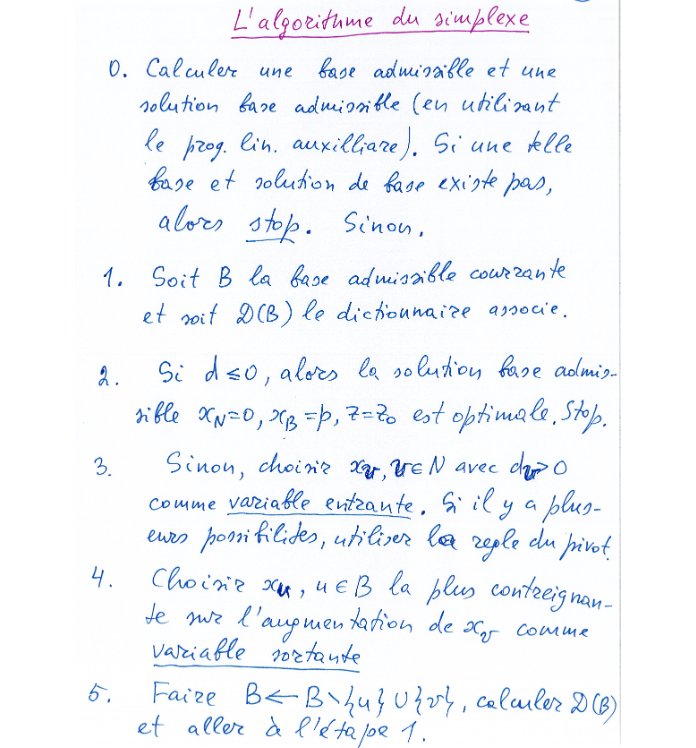 L'algorithme du simplexe
0. Calculer une base admissible et une
solution base admissible (en utilisant
le prog. lin. auxilliare). Si une telle
base et solution de base existe pas,
alors stop. Sinon,
1. Soit B la base admissible courrante
et soit D(B) le dictionnaire associe.
2. Si d ≤ 0, alors la solution base admis-
sible x_N=0, x_B=p, z=z_0 est optimale. Stop.
3. Sinon, choisir x_v, v∈N avec d_v>0
comme variable entrante. Si il y a plus-
eurs possibilites, utiliser la regle du pivot.
4. Choisir x_u, u∈B la plus contreignan-
te sur l'augmentation de x_v comme
variable sortante
5. Faire B ← B \ {u} ∪ {v}, calculer D(B)
et aller à l'étape 1.